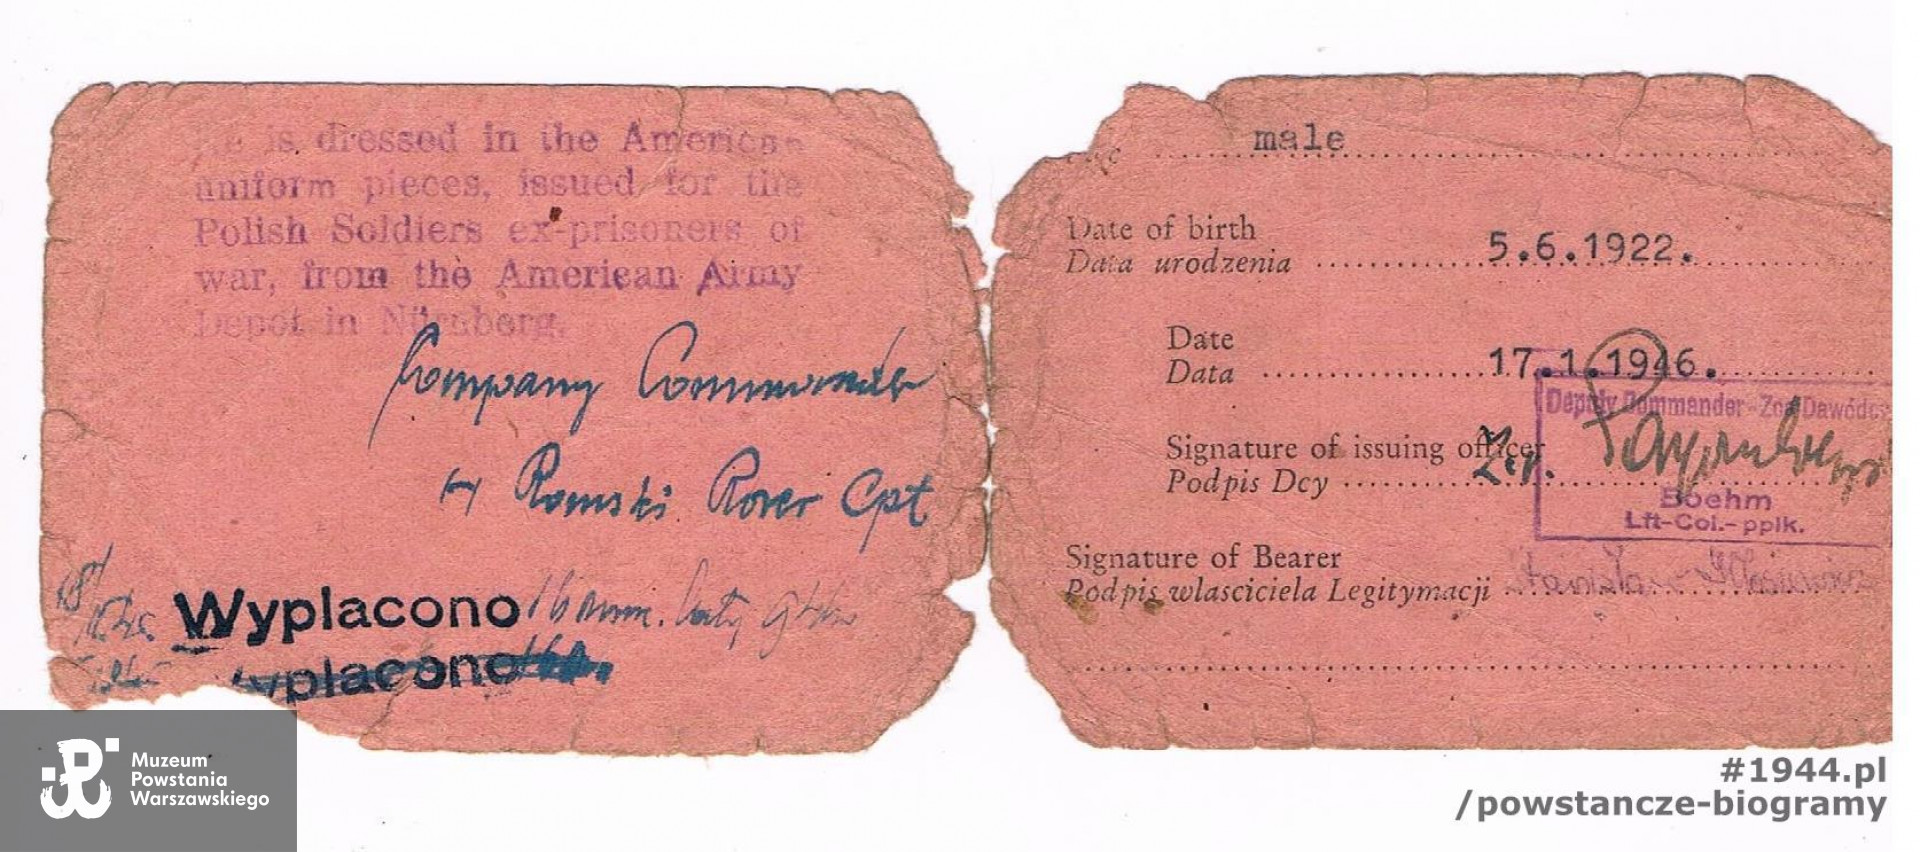 is dressed in the American
uniform pieces, issued for the
Polish Soldiers ex-prisoners of
war, from the American Army
Depot in Nürnberg.
Company Commander
Romski Roxer Cpt
Wyplacono
yplacono
male
Date of birth
Data urodzenia 5.6.1922.
Date
Data 17.1.1946.
Deputy Commander-Zca Dawódcy
Signature of issuing officer
Podpis Dcy
Boehm
Lft-Col.-pplk.
Signature of Bearer
Podpis wlasciciela Legitymacji
Muzeum
Powstania
Warszawskiego
#1944.pl
/powstancze-biogramy